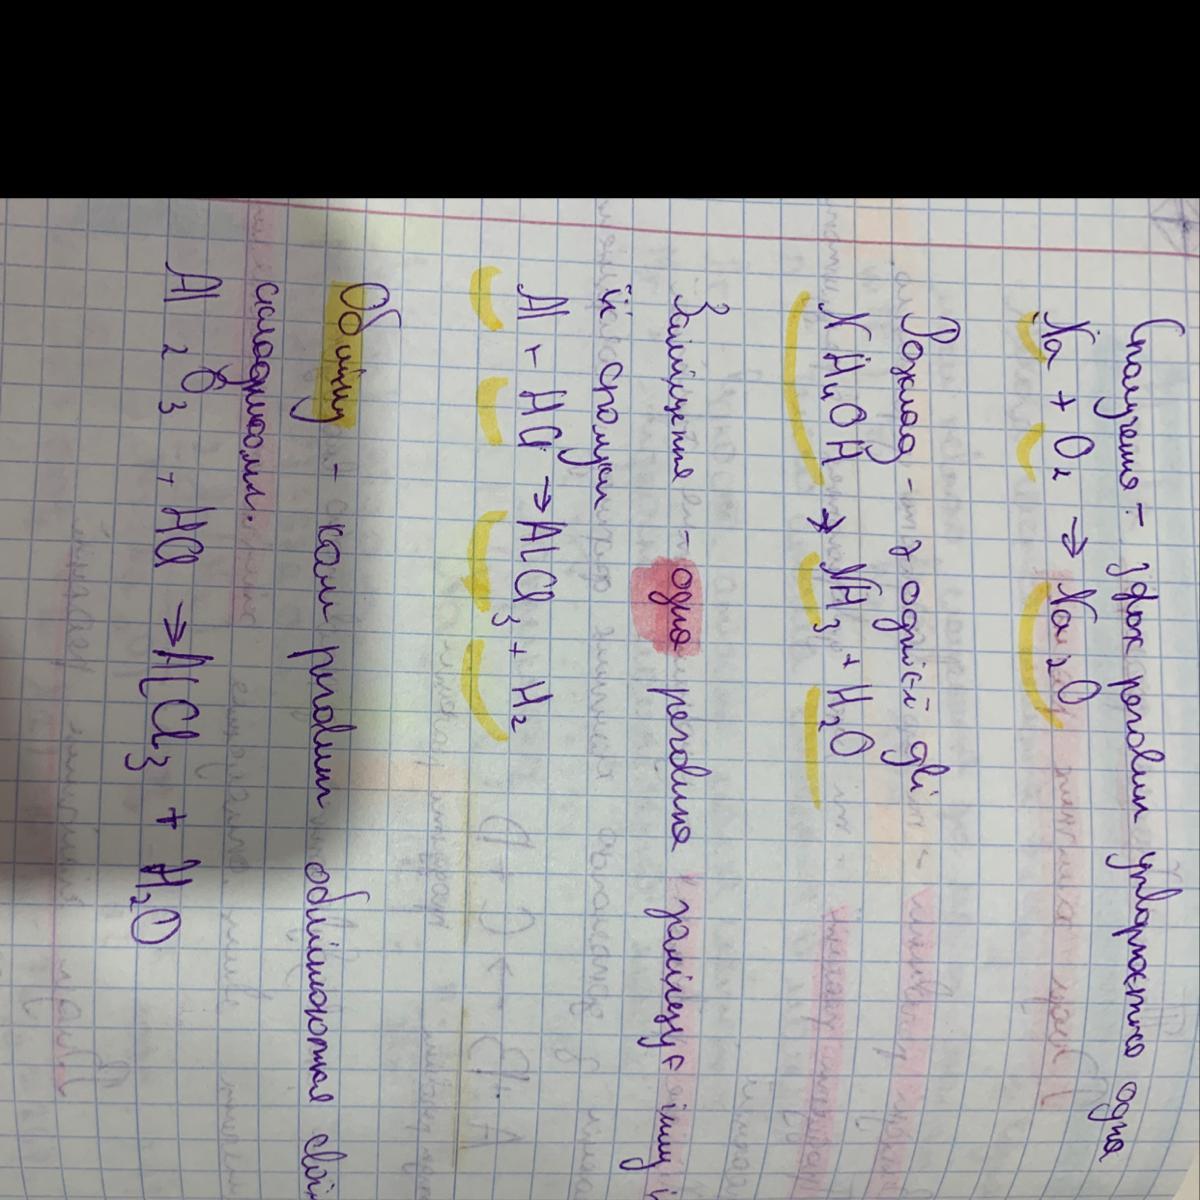 Сполучення - з двох речовин утворюється одна
Na + O₂ → Na₂O
Розклад - з однієї дві
NH₄OH → NH₃ + H₂O
Заміщення - одна речовина заміщує іншу і
її сполуки
Al + HCl → AlCl₃ + H₂
Обміну - коли речовини обмінюються свої
складниками.
Al₂O₃ + HCl → AlCl₃ + H₂O